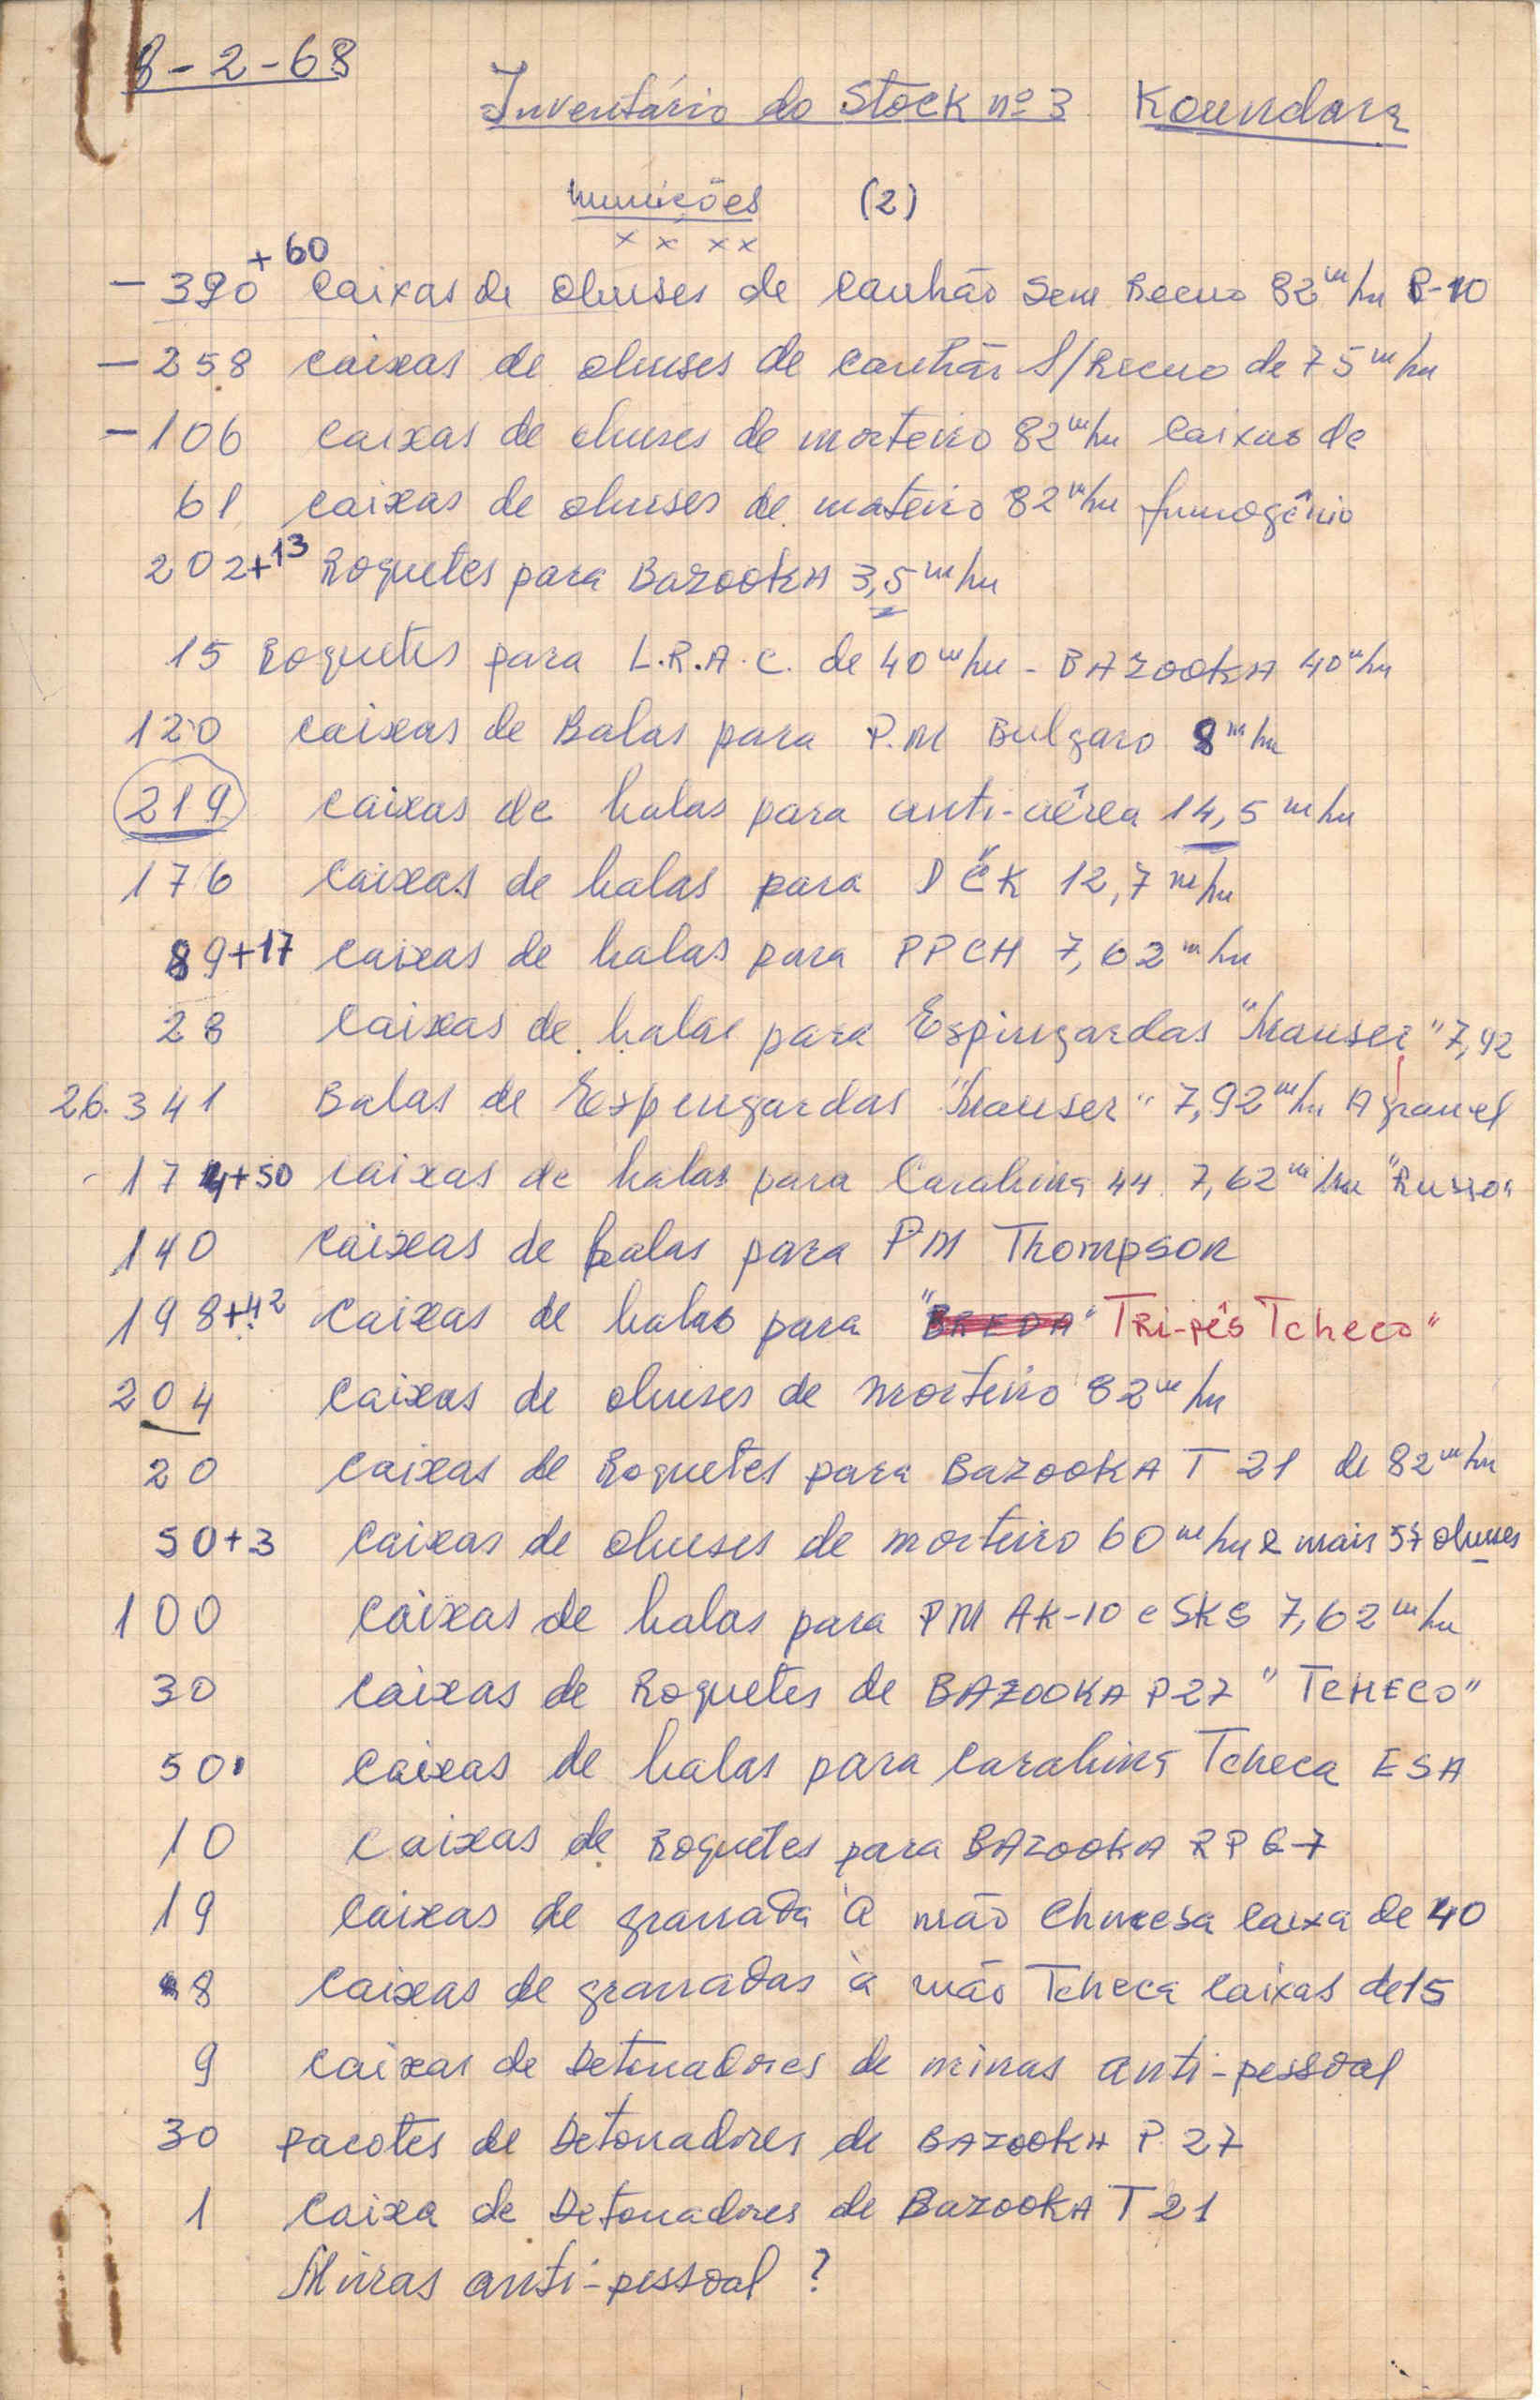 8-2-68
Inventário do Stock nº 3 Koundara
Munições (2)
x x x x
+ 60
- 390 Caixas de Obuses de Canhão Sem Recuo 82 m/m B-10
- 258 caixas de obuses de canhão S/Recuo de 75 m/m
- 106 caixas de obuses de morteiro 82 m/m Caixas de
61 caixas de obuses de morteiro 82 m/m fumogênio
202+13 Roquetes para BazookA 3,5 m/m
15 Roquetes para L.R.A.C. de 40 m/m - BAZookA 40 m/m
120 caixas de Balas para P.M Bulgaro 8 m/m
219 caixas de balas para anti-aérea 14,5 m/m
176 caixas de balas para DČK 12,7 m/m
89+17 caixas de balas para PPCH 7,62 m/m
28 caixas de balas para Espingardas "Mauser" 7,92
26.341 Balas de Espengardas "Mauser" 7,92 m/m A granel
- 174+50 caixas de balas para Carabina 44 7,62 m/m "Russo"
140 caixas de balas para PM Thompson
198+42 caixas de balas para "BREDA" TRi-pés Tcheco"
204 caixas de obuses de morteiro 82 m/m
20 caixas de Roquetes para BazookA T 21 de 82 m/m
50+3 caixas de obuses de morteiro 60 m/m e mais 57 obuses
100 caixas de balas para PM AK-10 e SKS 7,62 m/m
30 caixas de Roquetes de BAZOOKA P27 "TCHECO"
50 caixas de balas para carabina Tcheca ESA
10 caixas de Roquetes para BAzookA RPG-7
19 caixas de granada à mão Chineesa caixa de 40
8 caixas de granadas à mão Tcheca caixas de 15
9 caixas de Detonadores de minas anti-pessoal
30 pacotes de Detonadores de BAzookA P.27
1 Caixa de Detonadores de BazookA T 21
Minas anti-pessoal ?